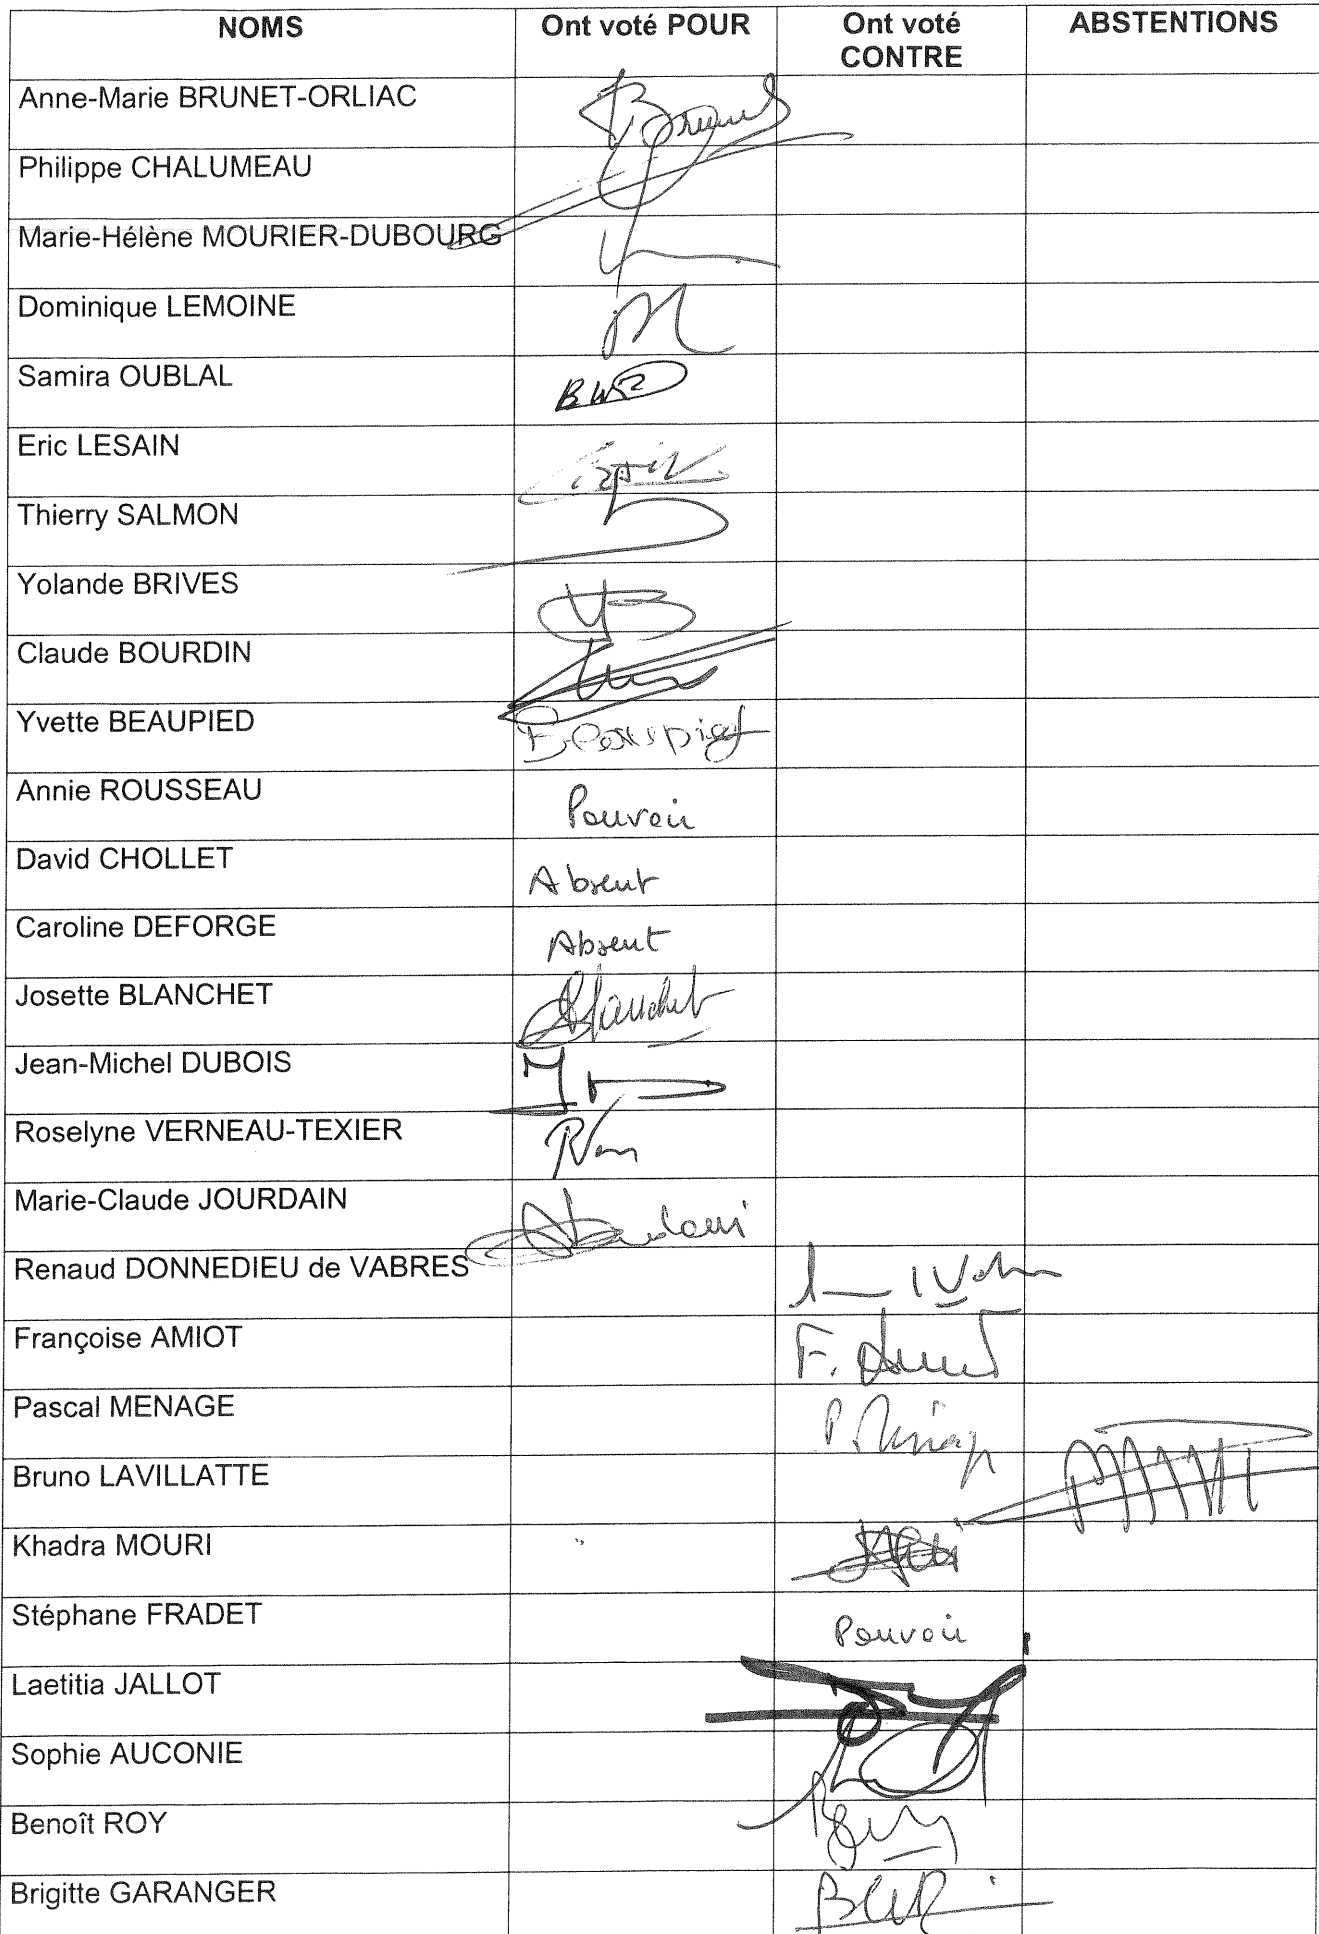 NOMS Ont voté POUR Ont voté CONTRE ABSTENTIONS
Anne-Marie BRUNET-ORLIAC
Philippe CHALUMEAU
Marie-Hélène MOURIER-DUBOURG
Dominique LEMOINE
Samira OUBLAL
Eric LESAIN
Thierry SALMON
Yolande BRIVES YB
Claude BOURDIN
Yvette BEAUPIED
Annie ROUSSEAU Pouvoir
David CHOLLET Absent
Caroline DEFORGE Absent
Josette BLANCHET Blanchet
Jean-Michel DUBOIS
Roselyne VERNEAU-TEXIER
Marie-Claude JOURDAIN
Renaud DONNEDIEU de VABRES
Françoise AMIOT
Pascal MENAGE
Bruno LAVILLATTE
Khadra MOURI
Stéphane FRADET Pouvoir
Laetitia JALLOT
Sophie AUCONIE
Benoît ROY
Brigitte GARANGER